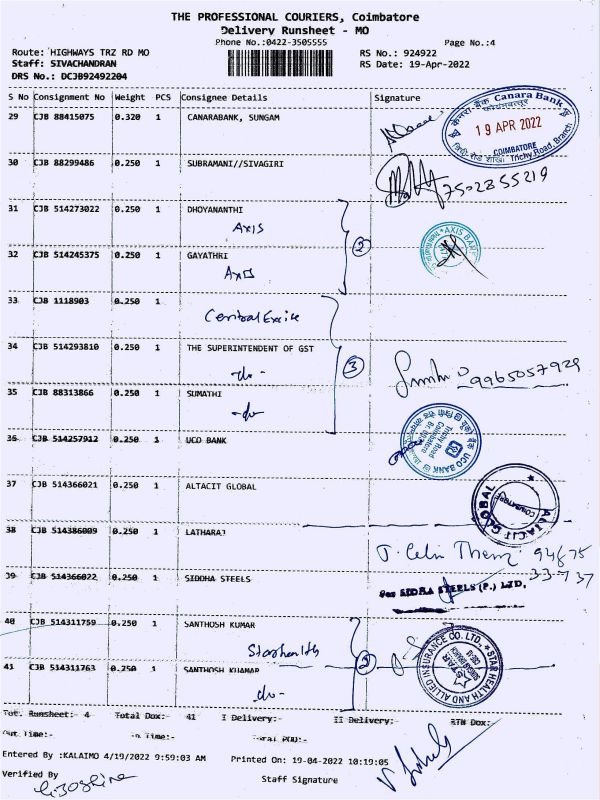 THE PROFESSIONAL COURIERS, Coimbatore
Delivery Runsheet - MO
Phone No.:0422-3505555 Page No.:4
Route: HIGHWAYS TRZ RD MO RS No.: 924922
Staff: SIVACHANDRAN RS Date: 19-Apr-2022
DRS No.: DCJB92492204
S No Consignment No Weight PCS Consignee Details Signature
29 CJB 88415075 0.320 1 CANARABANK, SUNGAM
केनरा बैंक Canara Bank
19 APR 2022
COIMBATORE
Trichy Road, Branch
30 CJB 88299486 0.250 1 SUBRAMANI//SIVAGIRI
7502855219
31 CJB 514273022 0.250 1 DHOYANANTHI
AXIS
2
AXIS BANK
32 CJB 514245375 0.250 1 GAYATHRI
Axis
33 CJB 1118903 0.250 1
Central Excise
34 CJB 514293810 0.250 1 THE SUPERINTENDENT OF GST
-do-
3
9965057929
35 CJB 88313866 0.250 1 SUMATHI
-do-
36 CJB 514257912 0.250 1 UCO BANK
UCO BANK
Trichy Road
Coimbatore
37 CJB 514366021 0.250 1 ALTACIT GLOBAL
ALTACIT GLOBAL
COIMBATORE
38 CJB 514386009 0.250 1 LATHARAJ
94875
33737
39 CJB 514366022 0.250 1 SIDDHA STEELS
For SIDHA STEELS (P.) LTD.
40 CJB 514311759 0.250 1 SANTHOSH KUMAR
Starhealth
2
STAR HEALTH AND ALLIED INSURANCE CO. LTD.
STAR
41 CJB 514311763 0.250 1 SANTHOSH KUAMAR
do-
Tot. Runsheet:- 4 Total Dox:- 41 I Delivery:- II Delivery:- RTN Dox:-
Out Time:- In Time:- Total POD:-
Entered By :KALAIMO 4/19/2022 9:59:03 AM Printed On: 19-04-2022 10:19:05
Verified By
Staff Signature